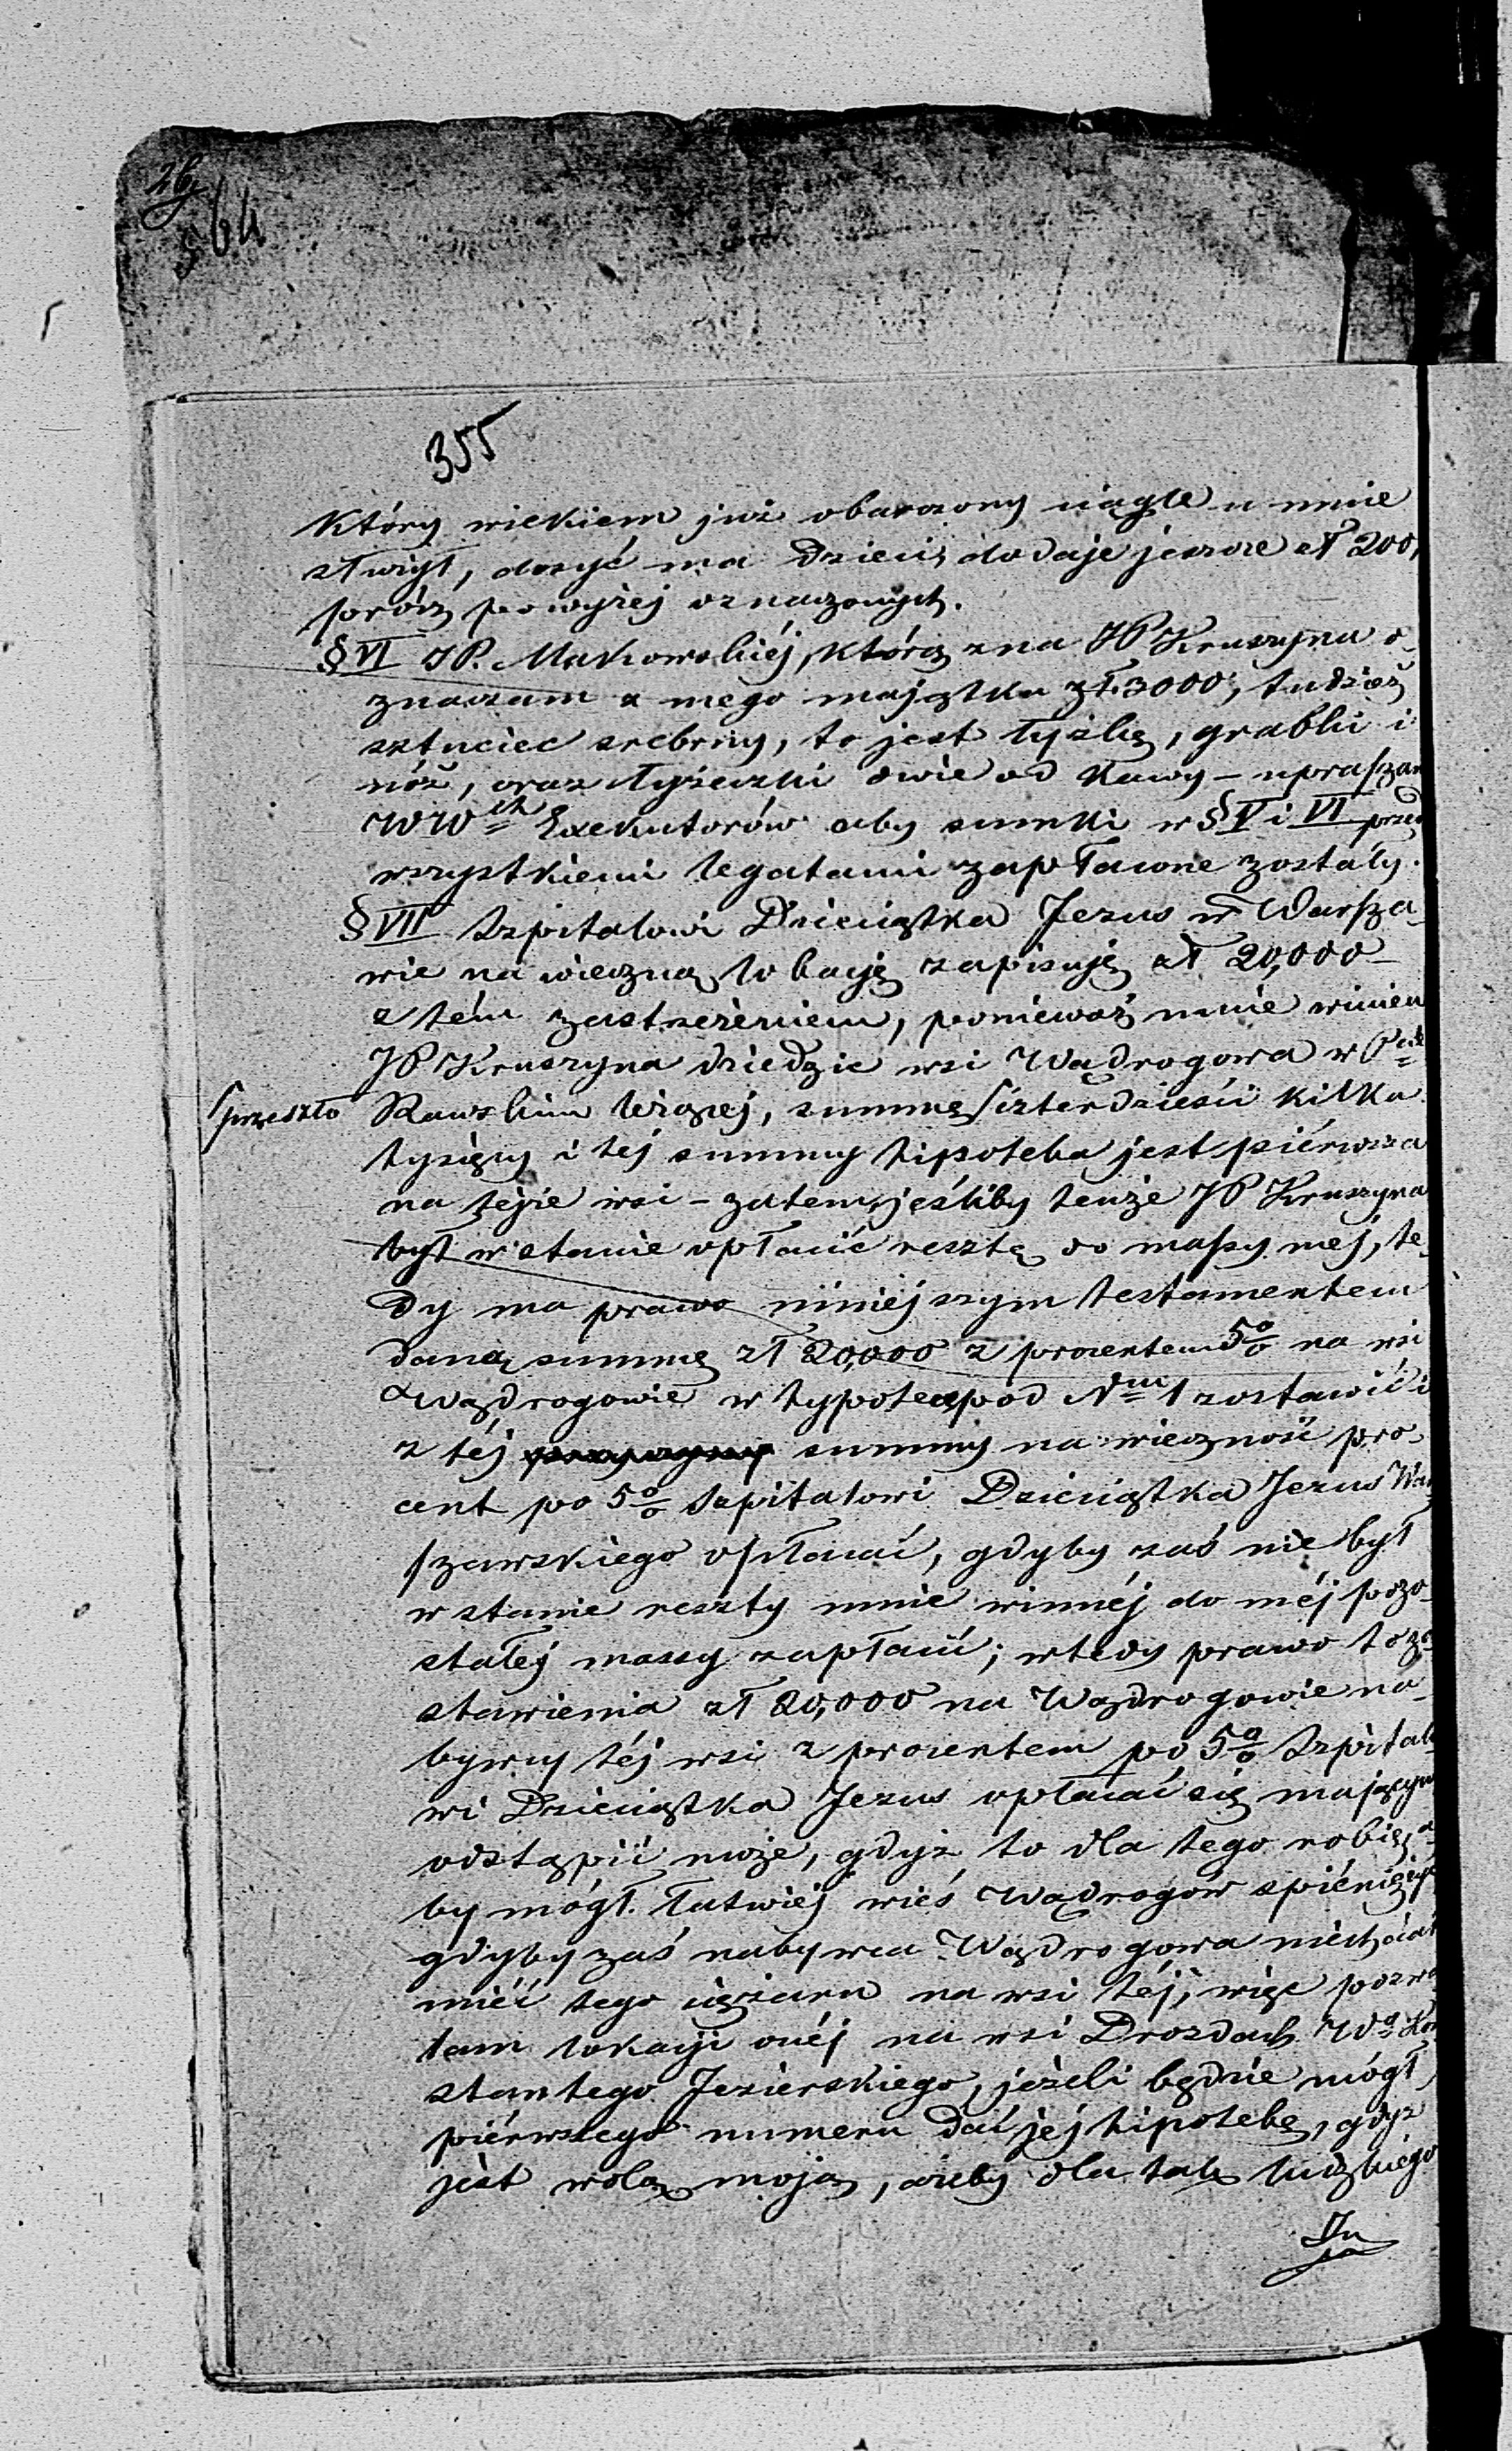 355
który wiekiem już obarczony ciągle u mnie
służył, dosyć ma dzieci, dodaje jeszcze zł 200,
prócz powyżej oznaczonych.
§ VI JP. Makowskiéj, którą zna JP Kruszyna o-
znaczam z mego majątku zł. 3000, tudzież
sztuciec srebrny, to jest łyżkę, grabki i
nóż, oraz łyżeczki dwie od kawy – upraszam
WWch Exekutorów aby summki w § V i VI przed
wszystkiemi legatami zapłacone zostały.
§ VII Szpitalowi Dzieciątka Jezus w Warsza-
wie na wieczną lokację zapisuję zł 20,000
z tém zastrzeżeniem, ponieważ mnie winien
JP Kruszyna dziedzic wsi Wądrogowa w Pcie
Rawskim leżącéj, summę ſ czterdzieści kilka
ſ przeszło
tysięcy i téj summy hipoteka jest piérwsza
na tejże wsi – zatem jeśliby tenże JP Kruszyna
był w stanie opłacić resztę do massy méj, te-
dy ma prawo niniéjszym testamentem
daną summę zł 20,000 z procentem 5% na wsi
Wądrogowie w hypotece pod Nm 1 zostawić i
z téj summy na wieczność pro-
cent po 5% Szpitalowi Dzieciątka Jezus War
szawskiego opłacać, gdyby zaś nie był
w stanie reszty mnie winnéj do méj pozo-
stałéj massy zapłacić; wtedy prawo to zo-
stawienia zł 20,000 na Wądrogowie na-
bywcy téj wsi z procentem po 5% Szpitalo-
wi Dzieciątka Jezus opłacać się mającym
odstąpić może, gdyż to dla tego robię, a-
by mógł łatwiéj wieś Wądrogów spieniężyć
gdyby zaś nabywca Wądrogowa niechciał
miéć tego ciężaru na wsi téj, więc pozwa
lam lokacji onéj na wsi Drozdach Wo Kon
stantego Jezierskiego, jeżeli będzie mógł
piérwszego numeru dać jéj hipotekę, gdyż
jest wolą moją, ażeby dla tak ludzkiego